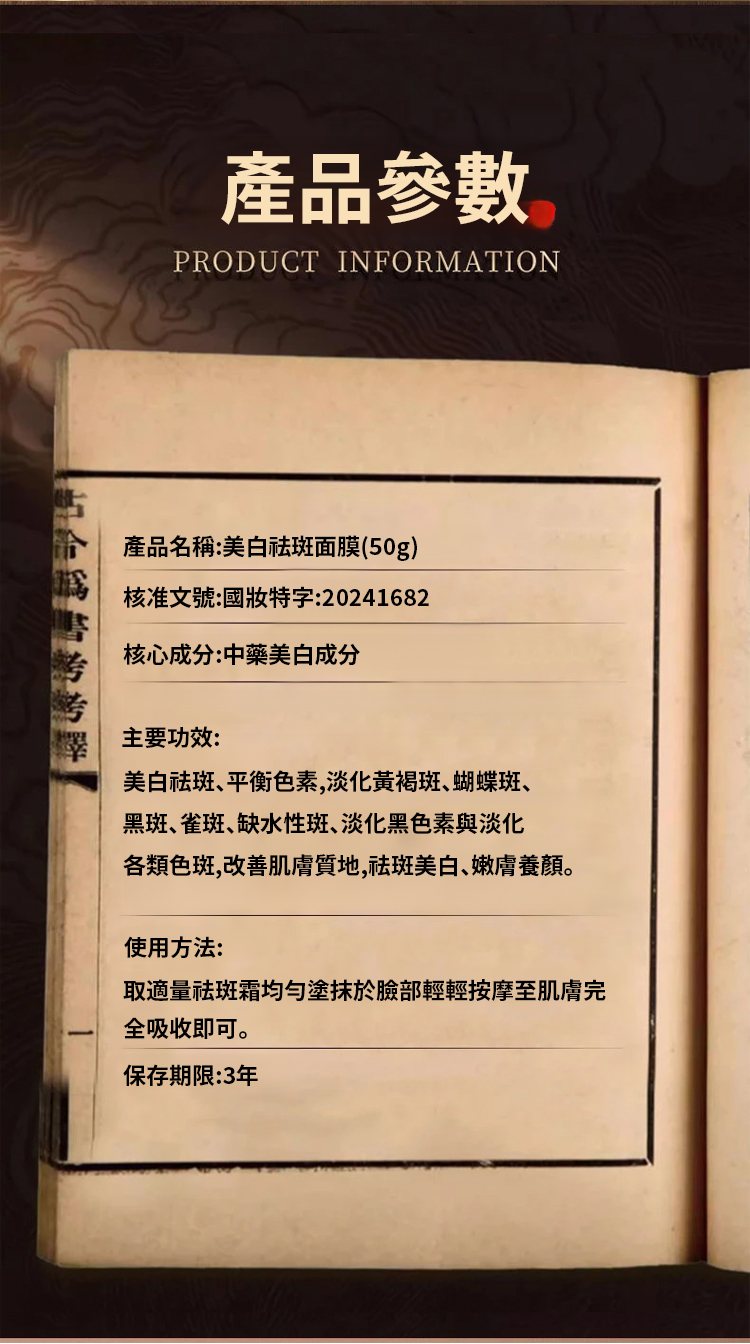 產品參數
PRODUCT INFORMATION
產品名稱:美白祛斑面膜(50g)
核准文號:國妝特字:20241682
核心成分:中藥美白成分
主要功效:
美白祛斑、平衡色素,淡化黃褐斑、蝴蝶斑、
黑斑、雀斑、缺水性斑、淡化黑色素與淡化
各類色斑,改善肌膚質地,祛斑美白、嫩膚養顏。
使用方法:
取適量祛斑霜均勻塗抹於臉部輕輕按摩至肌膚完
全吸收即可。
保存期限:3年
一